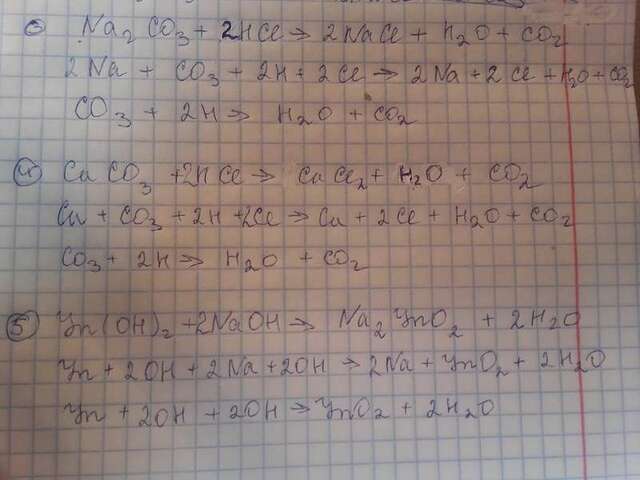 ③ Na₂CO₃ + 2HCl → 2NaCl + H₂O + CO₂
2Na + CO₃ + 2H + 2Cl → 2Na + 2Cl + H₂O + CO₂
CO₃ + 2H → H₂O + CO₂
④ CaCO₃ + 2HCl → CaCl₂ + H₂O + CO₂
Ca + CO₃ + 2H + 2Cl → Ca + 2Cl + H₂O + CO₂
CO₃ + 2H → H₂O + CO₂
⑤ Zn(OH)₂ + 2NaOH → Na₂ZnO₂ + 2H₂O
Zn + 2OH + 2Na + 2OH → 2Na + ZnO₂ + 2H₂O
Zn + 2OH + 2OH → ZnO₂ + 2H₂O